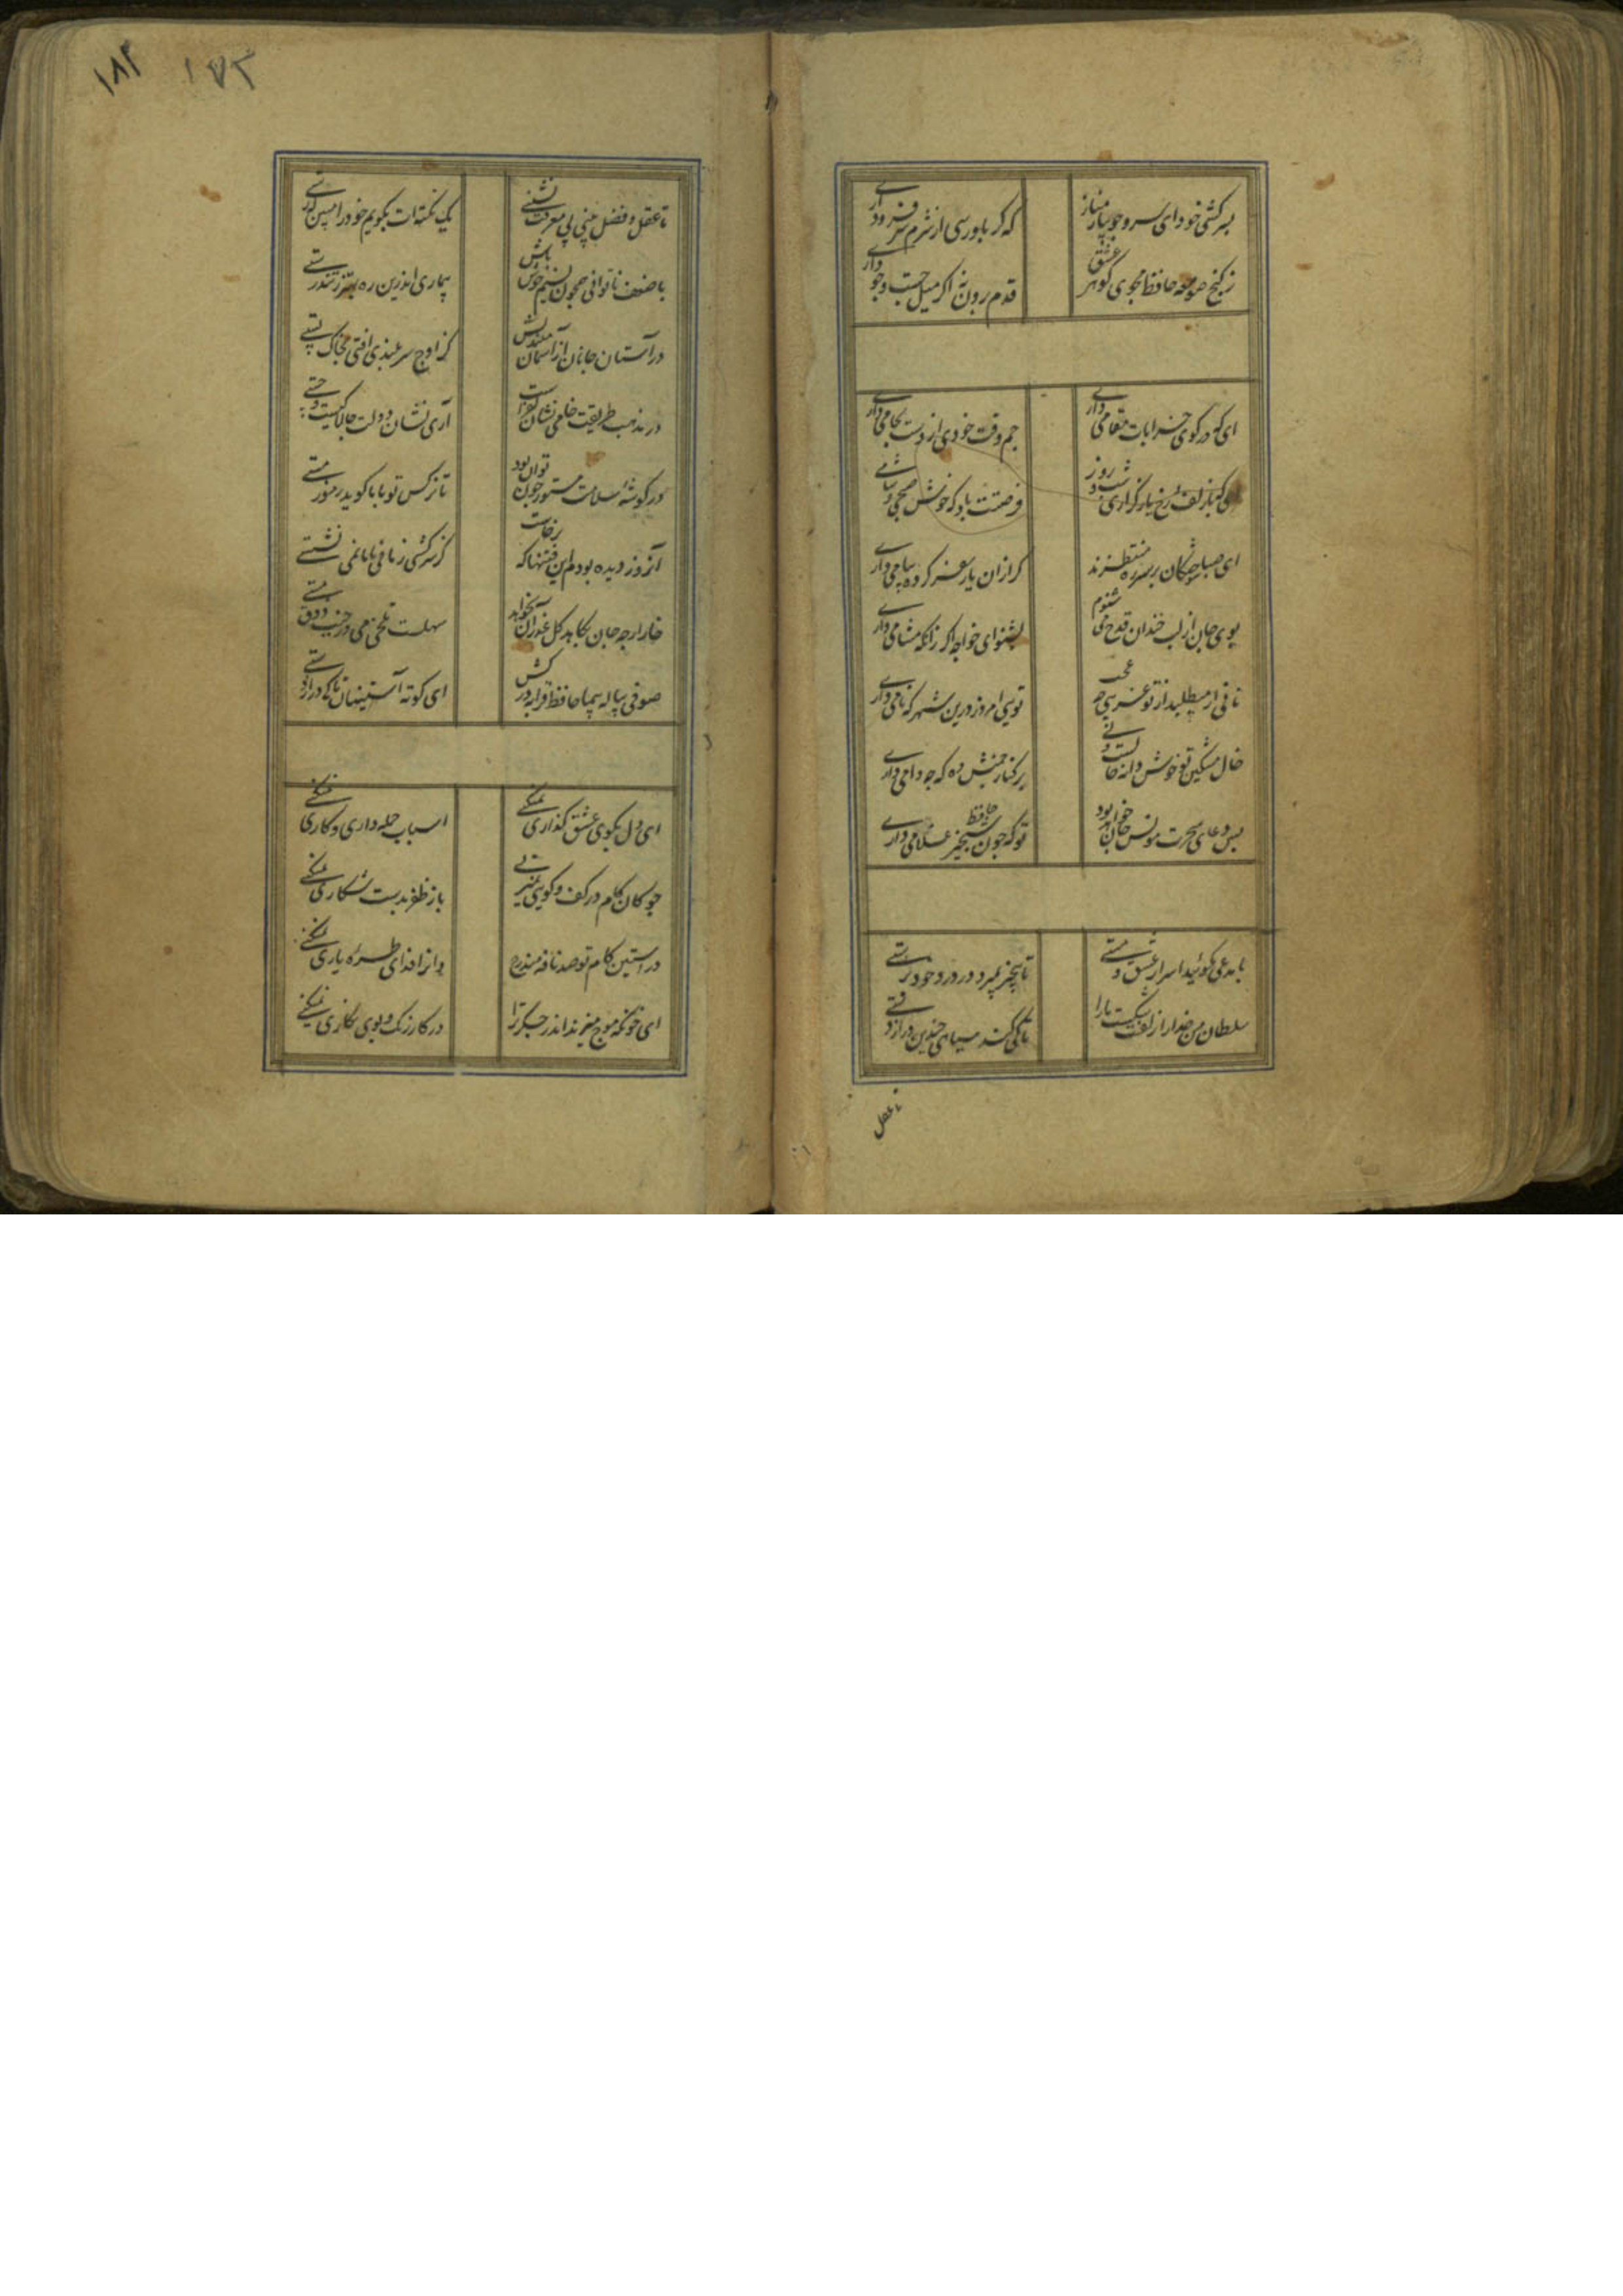 بسرکشی خود ای سرو جویبار مناز
که کر باو رسی از شرم سر فرود آری
ز کنج صومعه حافظ مجوی کوهر عشق
قدم برون نه اکر میل جست و جو داری
ای که در کوی خرابات مقامی داری
جم وقت خودی ار دست بجامی داری
ای که با زلف و رخ یار گزاری شب و روز
فرصتت باد که خوش صبحی و شامی داری
ای صبا سوختکان بر سر ره منتظرند
کر از ان یار سفر کرده پیامی داری
بوی جان از لب خندان قدح می شنوم
بشنو ای خواجه اکر زانکه مشامی داری
نامی ار میطلبد از تو غریبی چه عجب
تویی امروز درین شهر که نامی داری
خال مشکین تو خوش دانه حالست ولی
بر کنار چمنش وه که چه دامی داری
بس دعای سحرت مونس جان خواهد بود
تو که چون حافظ شبخیز غلامی داری
با مدعی مکوئید اسرار عشق و مستی
تا بیخبر بمیرد در درد خود پرستی
سلطان من خدا را زلفت شکست ما را
تا کی کند سیاهی چندین دراز دستی
تا عقل
تا عقل و فضل بینی بی معرفت نشینی
یک نکته ات بکویم خود را مبین که رستی
با ضعف ناتوانی همچون نسیم خوش باش
بیماری اندرین ره بهتر ز تندرستی
در آستان جانان از آسمان میندیش
کز اوج سربلندی افتی بخاک پستی
در مذهب طریقت خامی نشان کفر است
آری نشان دولت چالاکیست و چستی
در کوشه سلامت مستور چون توان بود
تا نرکس تو با ما کوید رموز مستی
آنروز دیده بودم این فتنها که برخاست
کز سرکشی زمانی با ما نمی نشستی
خار ارچه جان بکاهد کل عذر آن بخواهد
سهلست تلخی می در جنب ذوق مستی
صوفی پیاله پیما حافظ قرابه در کش
ای کوته آستینان تا کی دراز دستی
ای دل بکوی عشق کذاری نمیکنی
اسباب جمله داری و کاری نمیکنی
چوکان کام در کف و کویی نمیزنی
باز ظفر بدست شکاری نمیکنی
در استین کام تو صد نافه مندرج
و انرا فدای طره یاری نمیکنی
ای خونکه موج میزند اندر جکر ترا
در کار رنک و بوی نکاری نمیکنی
۱۷۳
۱۸۲